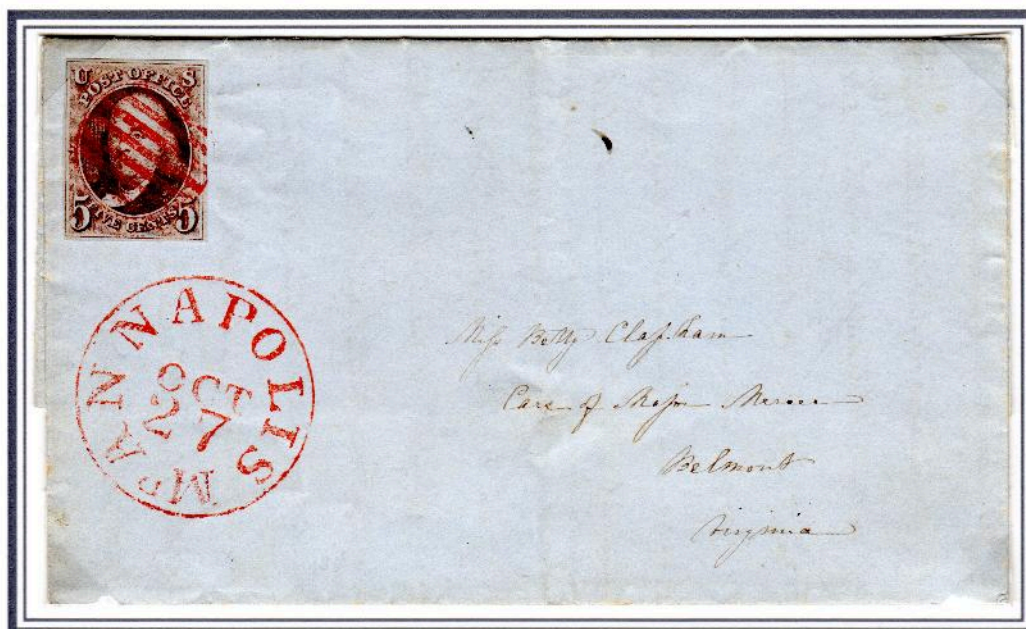 U S
POST OFFICE
5 FIVE CENTS 5
ANNAPOLIS Md
OCT
27
Miss Betty Clapham
Care of Major Mercer
Belmont
Virginia